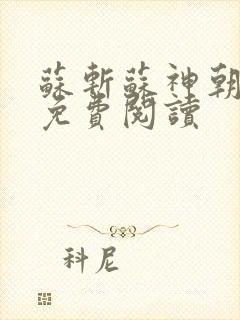 蘇斬蘇神朝
免費閱讀
科尼